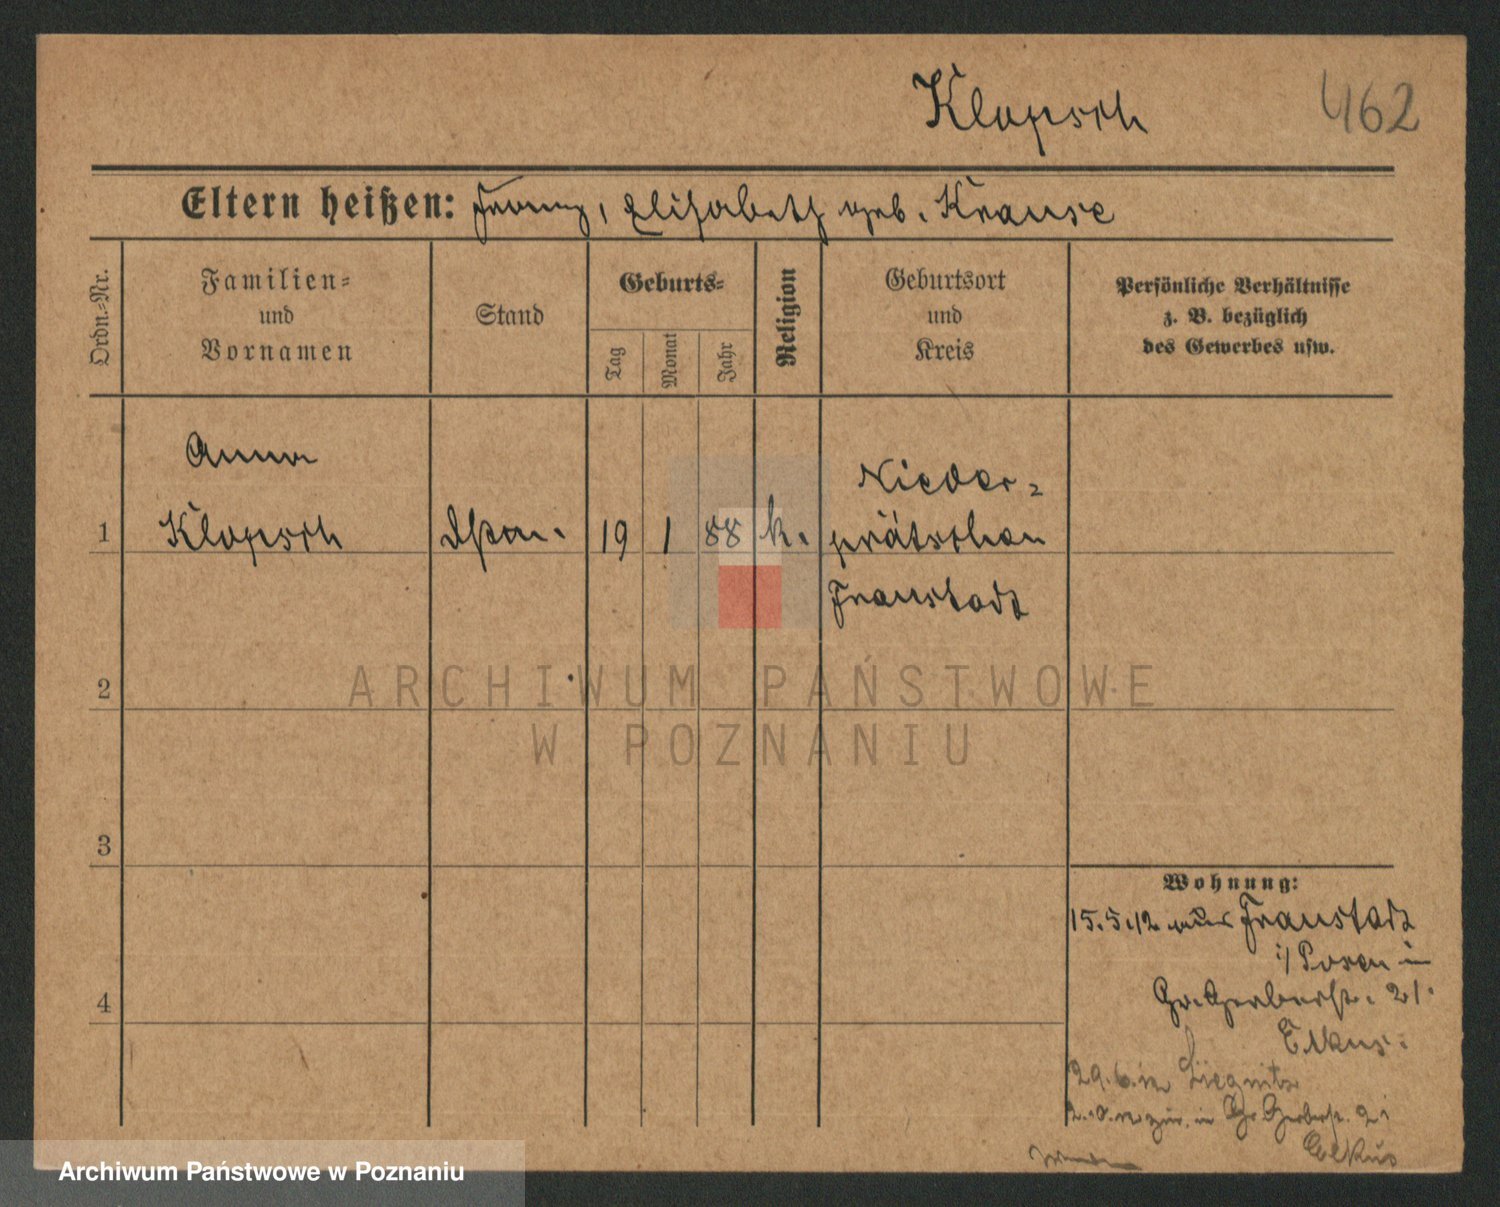 Klopsch
462
Eltern heißen: Franz, Elisabeth geb. Krause
Ordn.-Nr.
Familien-
und
Vornamen
Stand
Geburts-
Tag
Monat
Jahr
Religion
Geburtsort
und
Kreis
Persönliche Verhältnisse
z. B. bezüglich
des Gewerbes usw.
Anna
1 Klopsch 19 1 88 k.
Nieder-
prätschen
Fraustadt
2
3
4
Wohnung:
15.5.12 aus Fraustadt
i/Posen in
Gr. Gerberstr. 21.
Elkus.
29.6.12 Liegnitz
zur. in Gr. Gerberstr. 21
Elkus
ARCHIWUM PAŃSTWOWE
W POZNANIU
Archiwum Państwowe w Poznaniu